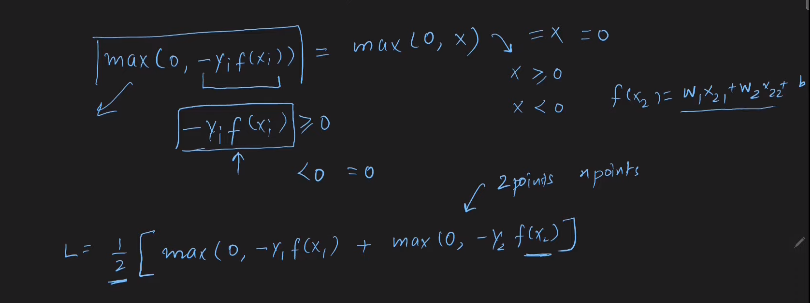 max(0, -Yif(xi)) = max(0, x) = x = 0
x ≥ 0
x < 0
f(x2) = W1x21 + W2x22 + b
-Yif(xi) ≥ 0
<0 = 0
2 points n points
L = 1/2 [max(0, -Y1f(x1) + max(0, -Y2 f(x2)]